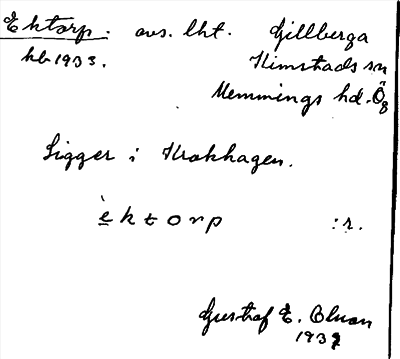 Ektorp. avs. lht. Gillberga
kb 1933. Kimstads sn
Memmings hd. Ög
Ligger i Krokhagen.
èktorp :r.
Gustaf E. Olson
1932